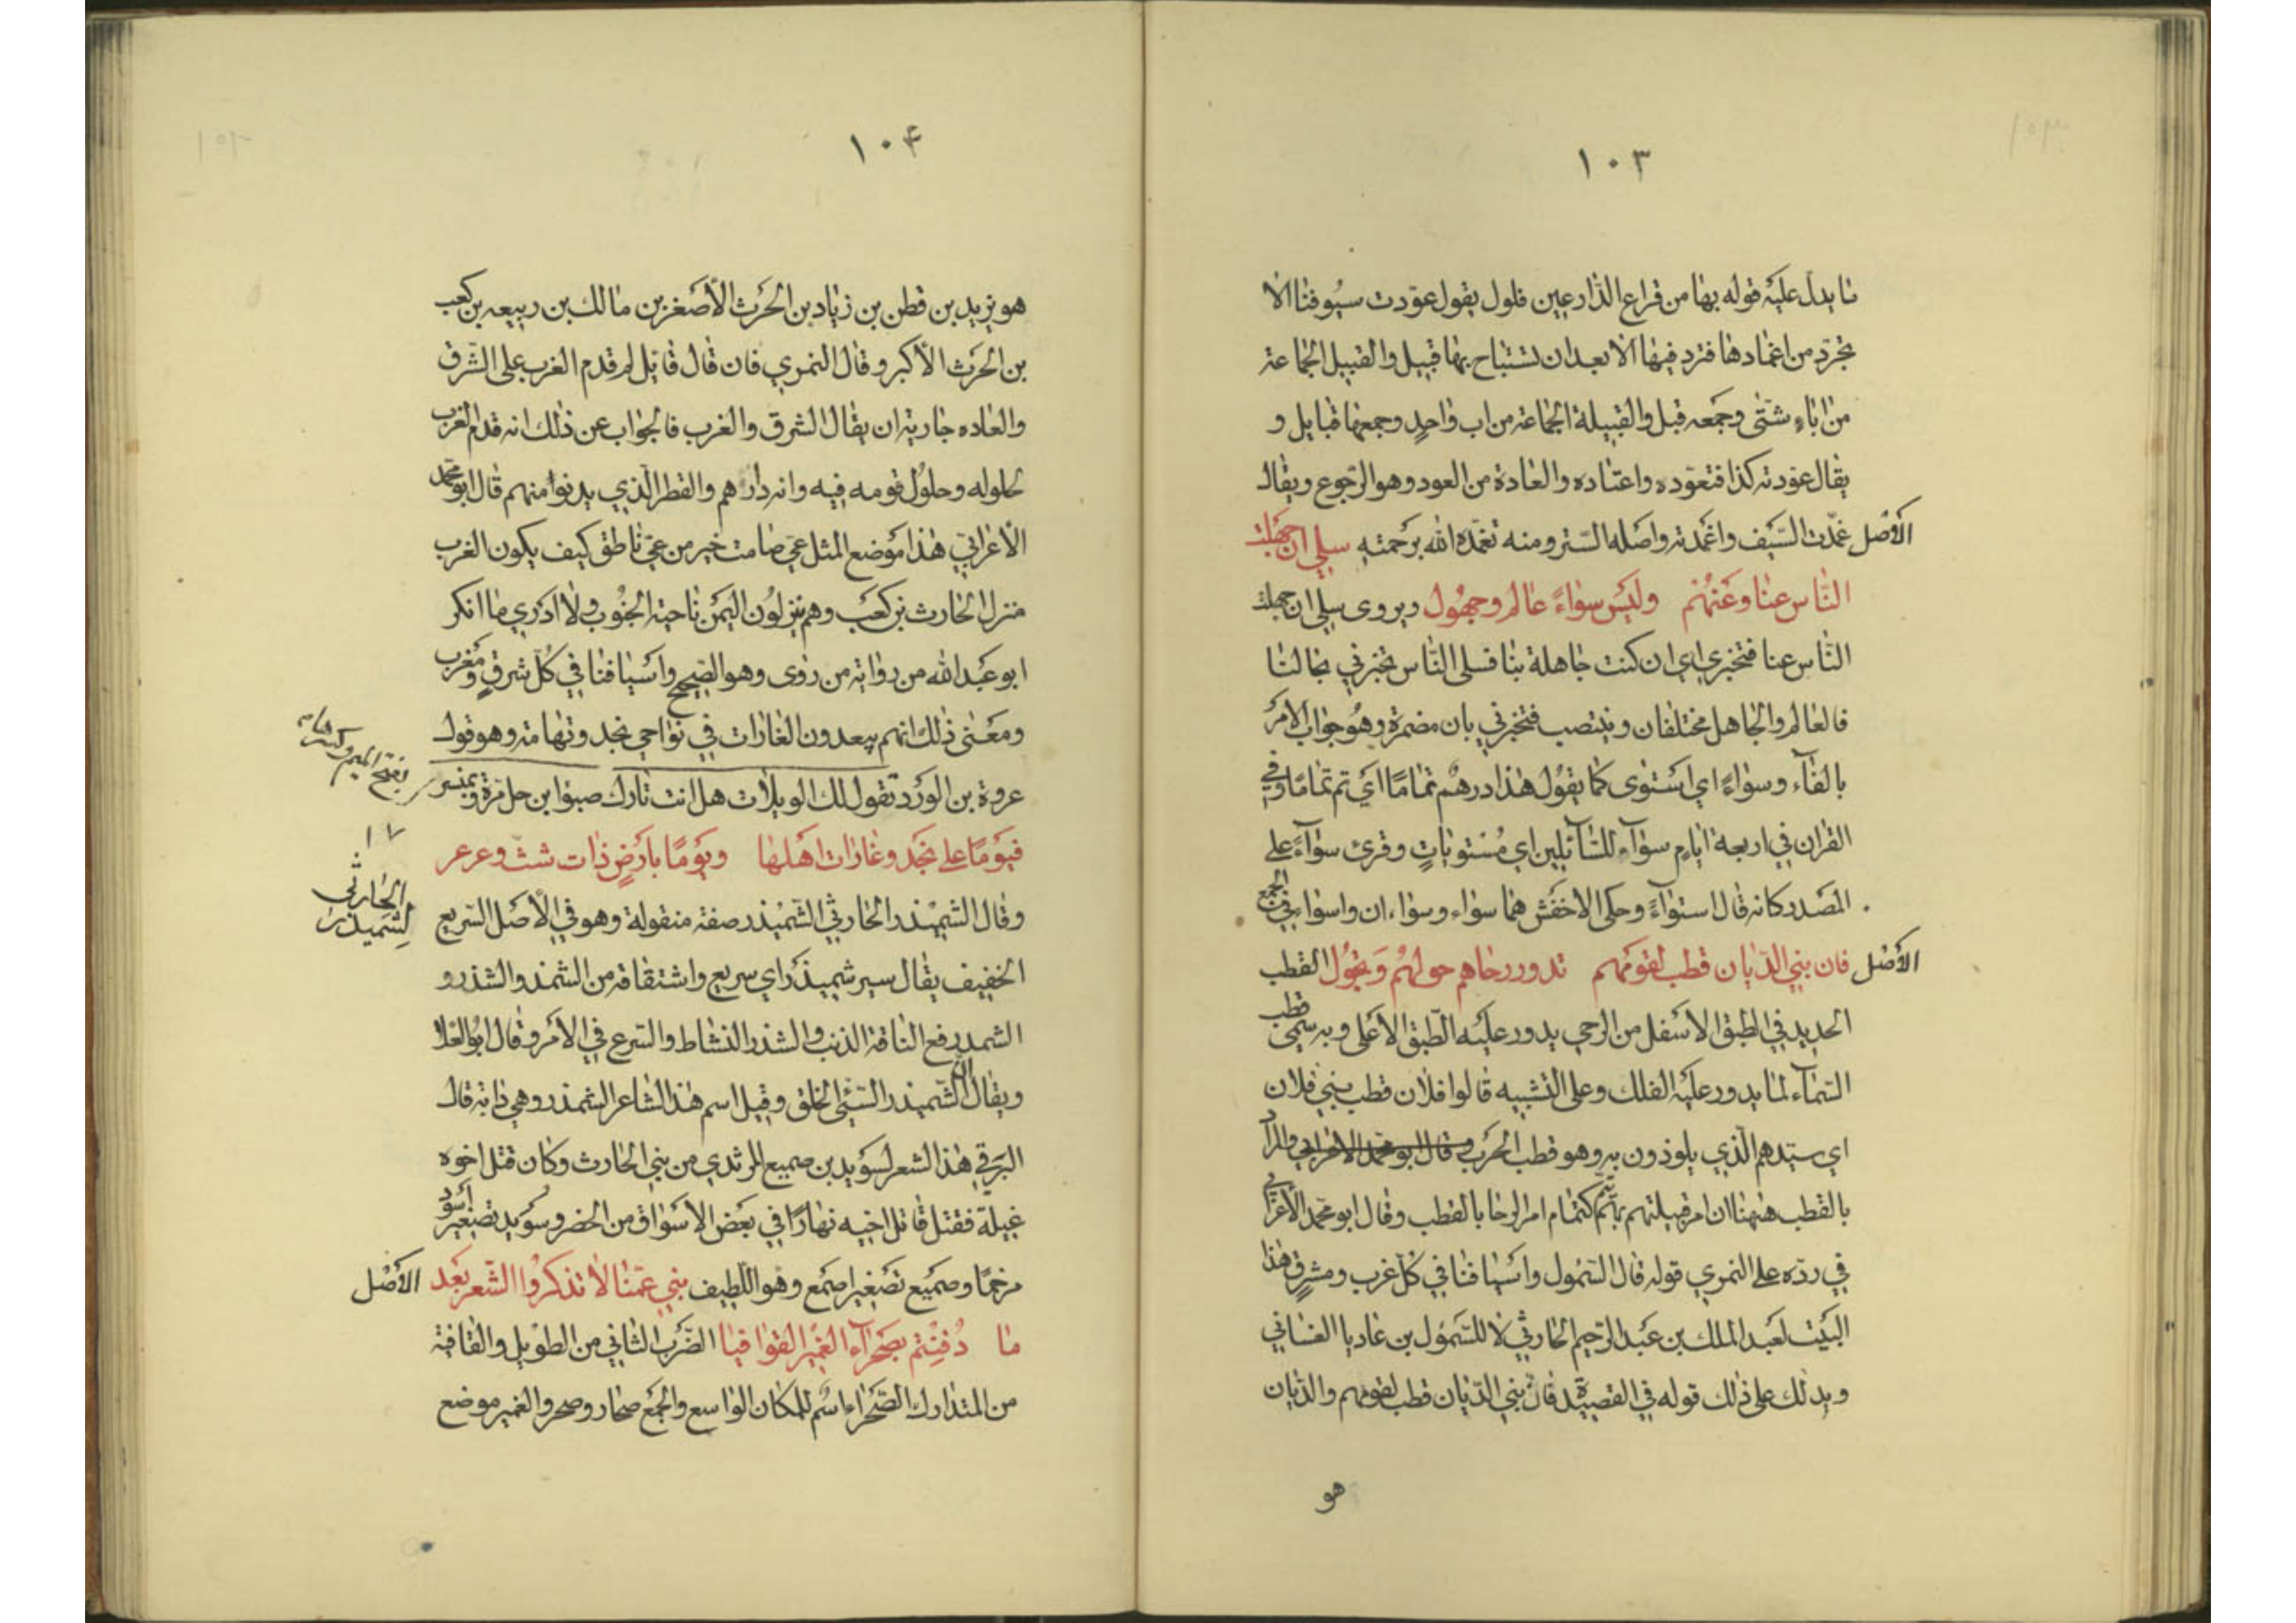 ١٠٣
ما يدل عليه قوله بها من قراع الذارعين فلول يقول عودت سيوفنا الا
تجرد من اغمادها فترد فيها الا بعد ان تستباح بها قبيل والقبيل الجماعة
من اباءٍ شتى وجمعه قبل والقبيلة الجماعة من اب واحدٍ وجمعها قبايل و
يقال عودته كذا فتعوده واعتاده والعادة من العود وهو الرجوع ويقال
الأصل غمدت السيف واغمدته واصله الستر ومنه تغمده الله برحمته سلي ان جهلت
الناس عنا وعنهم وليس سواءً عالم وجهول ويروى سلي ان جهلت
الناس عنا فتخبري اي ان كنت جاهلة بنا فسلي الناس تخبرني بحالنا
فالعالم والجاهل مختلفان وينتصب فتخبرني بان مضمرة وهو جواب الامر
بالفآء وسواءً اي استوى كما يقول هذا درهم تمامًا اي تم تمامًا وفي
القران في اربعة ايام سوآء للسآئلين اي مستوياتٍ وقرئ سوآءً على
المصدر كانه قال استوآءً وحكى الاخفش هما سواء وسواءان واسوا في الجمع
الأصل فان بني الديان قطب لقومهم تدور رحاهم حولهم وتجول القطب
الحديد في الطبق الاسفل من الرحى يدور عليه الطبق الاعلى وبه سمي قطب
السمآء لما يدور عليه الفلك وعلى التشبيه قالوا فلان قطب بني فلان
اي سيدهم الذي يلوذون به وهو قطب الحرب وقال ابو محمد الاعرابي والمراد
بالقطب ههنا ان امر قبيلتهم بهم يتم كتمام امر الرحا بالقطب وقال ابو محمد الأعرابي
في رده على النمري قوله قال السمول واسيافنا في كل غرب ومشرقٍ هذا
البيت لعبد الملك بن عبد الرحيم الحارثي لا للسمول بن عاديا الغساني
ويدلك على ذلك قوله في القصيدة فان بني الديان قطب لقومهم والديان
هو
١٠٤
هو يزيد بن قطن بن زياد بن الحرث الأصغر بن مالك بن ربيعه بن كعب
بن الحرث الأكبر وقال النمري فان قال قايل لم قدم الغرب على الشرق
والعاده جارية ان يقال الشرق والغرب فالجواب عن ذلك انه قدم الغرب
لحلوله وحلول قومه فيه وانه دارهم والقطر الذي يدنوا منهم قال ابو محمد
الأعرابي هذا موضع المثل عي صامت خير من عي ناطق كيف يكون الغرب
منزل الحارث بن كعب وهم ينزلون اليمن ناحية الجنوب ولا ادري ما انكر
ابو عبد الله من رواية من روى وهو الصحيح واسيافنا في كل شرقٍ ومغرب
ومعنى ذلك انهم يبعدون الغارات في نواحي نجد وتهامة وهو قول
عروة بن الورد تقول لك الويلات هل انت تارك صبوا ابن حل مرة وبمنسر
بفتح الميم وكسرها
فيومًا على نجد وغارات اهلها ويومًا بارضٍ ذات شث وعرعر
١٧
الحارثي
لشميذر
وقال الشميذر الحارثي الشميذر صفة منقولة وهو في الأصل السريع
الخفيف يقال سير شميذر اي سريع واشتقاقه من الشمذ والشذر و
الشمذ رفع الناقة الذنب والشذر النشاط والسرع في الأمر وقال ابو العلا
ويقال ان الشميذر السئ الخلق وقيل اسم هذا الشاعر الشمذر وهي دابة قال
البرقي هذا الشعر لسويد بن صميع المرثدي من بني الحارث وكان قتل اخوه
غيلة فقتل قاتل اخيه نهارًا في بعض الاسواق من الحضر وسويد تصغير اسود
مرخمًا وصميع تصغير اصمع وهو اللطيف بني عمنا لا تذكروا الشعر بعد الأصل
ما دفنتم بصحرآء الغمير القوافيا الضرب الثاني من الطويل والقافية
من المتدارك الصحراء اسم للمكان الواسع والجمع صحار وصحر والغمير موضع